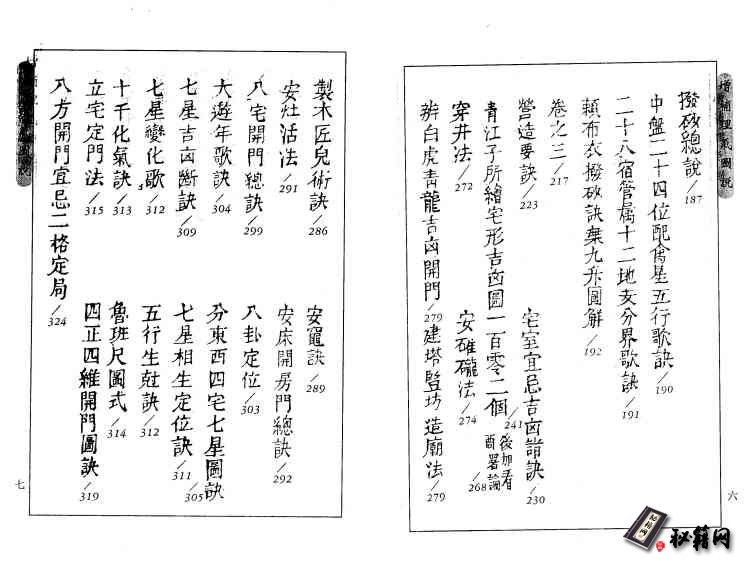 增補理氣圖說
撥砂總說/187
中盤二十四位配禽星五行歌訣/190
二十八宿管屬十二地支分界歌訣/191
賴布衣撥砂訣棄九升圖解/192
卷之三/217
營造要訣/223
宅室宜忌吉凶諧訣/230
青江子所繪宅形吉凶圖一百零二個/241
後加看商署論/268
穿井法/272
安碓礲法/274
辨白虎青龍吉凶開門/279
建塔豎坊造廟法/279
六
製木匠兒術訣/286
安竈訣/289
安灶活法/291
安床開房門總訣/292
八宅開門總訣/299
八卦定位/303
大遊年歌訣/304
分東西四宅七星圖訣/305
七星吉凶斷訣/309
七星相生定位訣/311
七星變化歌/312
五行生尅訣/312
十干化氣訣/313
魯班尺圖式/314
立宅定門法/315
四正四維開門圖訣/319
八方開門宜忌二格定局/324
七
秘籍网